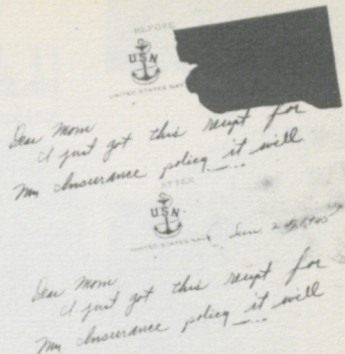 BEFORE
USN
UNITED STATES NAVY
Dear Mom
I just got this receipt for
my Insurance policy it will
AFTER
USN
UNITED STATES NAVY
Dear Mom
I just got this receipt for
my Insurance policy it will